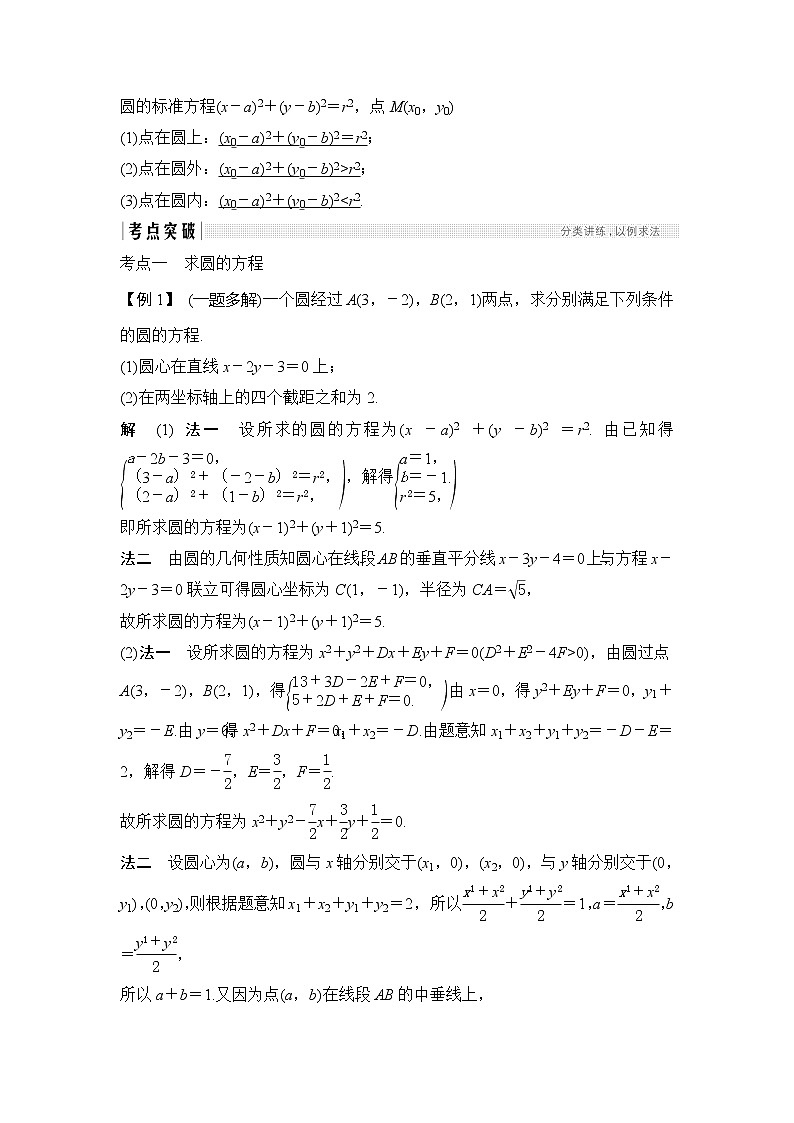 圆的标准方程(x－a)²＋(y－b)²＝r²，点 M(x₀，y₀)
(1)点在圆上：(x₀－a)²＋(y₀－b)²＝r²；
(2)点在圆外：(x₀－a)²＋(y₀－b)²>r²；
(3)点在圆内：(x₀－a)²＋(y₀－b)²<r².
考点突破 分类讲练，以例求法
考点一　求圆的方程
【例 1】 (一题多解)一个圆经过 A(3，－2)，B(2，1)两点，求分别满足下列条件
的圆的方程.
(1)圆心在直线 x－2y－3＝0 上；
(2)在两坐标轴上的四个截距之和为 2.
解　(1) 法一　设所求的圆的方程为(x －a)² ＋(y －b)² ＝r². 由已知得
{a－2b－3＝0，（3－a）²＋（－2－b）²＝r²，（2－a）²＋（1－b）²＝r²，)，解得{a＝1，b＝－1.r²＝5，)
即所求圆的方程为(x－1)²＋(y＋1)²＝5.
法二　由圆的几何性质知圆心在线段 AB 的垂直平分线 x－3y－4＝0 上，与方程 x－
2y－3＝0 联立可得圆心坐标为 C(1，－1)，半径为 CA＝√5，
故所求圆的方程为(x－1)²＋(y＋1)²＝5.
(2)法一　设所求圆的方程为 x²＋y²＋Dx＋Ey＋F＝0(D²＋E²－4F>0)，由圆过点
A(3，－2)，B(2，1)，得{13＋3D－2E＋F＝0，5＋2D＋E＋F＝0.)由 x＝0，得 y²＋Ey＋F＝0，y₁＋
y₂＝－E.由 y＝0，得 x²＋Dx＋F＝0，x₁＋x₂＝－D.由题意知 x₁＋x₂＋y₁＋y₂＝－D－E＝
2，解得 D＝－7/2，E＝3/2，F＝1/2.
故所求圆的方程为 x²＋y²－7/2x＋3/2y＋1/2＝0.
法二　设圆心为(a，b)，圆与 x 轴分别交于(x₁，0)，(x₂，0)，与 y 轴分别交于(0，
y₁)，(0，y₂)，则根据题意知 x₁＋x₂＋y₁＋y₂＝2，所以(x1＋x2)/2＋(y1＋y2)/2＝1，a＝(x1＋x2)/2，b
＝(y1＋y2)/2，
所以 a＋b＝1.又因为点(a，b)在线段 AB 的中垂线上，